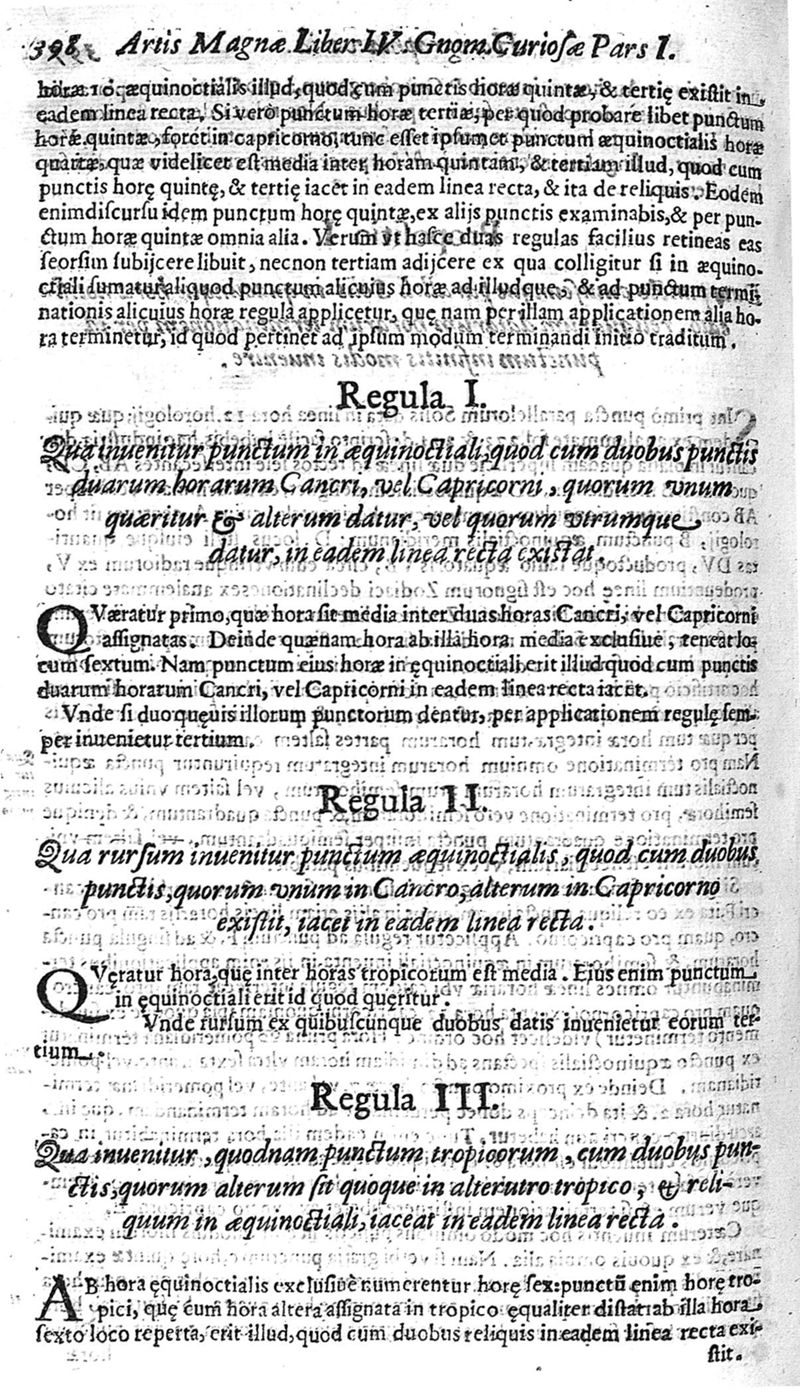 398 Artis Magnæ Liber IV. Gnom. Curiosæ Pars I.
horæ 10. æquinoctialis illud, quod cum punctis horæ quintæ, & tertię existit in
eadem linea recta. Si vero punctum horæ tertiæ, per quod probare libet punctum
horæ quintæ, foret in capricorno, tunc esset ipsumet punctum æquinoctialis horæ
quartæ, quæ videlicet est media inter horam quintam, & tertiam illud, quod cum
punctis horę quintę, & tertię iacet in eadem linea recta, & ita de reliquis. Eodem
enim discursu idem punctum horę quintæ, ex alijs punctis examinabis, & per pun-
ctum horæ quintæ omnia alia. Verum vt hasce duas regulas facilius retineas eas
seorsim subijcere libuit, necnon tertiam adijcere ex qua colligitur si in æquino-
ctiali sumatur aliquod punctum alicuius horæ ad illudque, & ad punctum termi-
nationis alicuius horæ regula applicetur, quę nam per illam applicationem alia ho-
ra terminetur, id quod pertinet ad ipsum modum terminandi initio traditum.
Regula I.
Qua inuenitur punctum in æquinoctiali, quod cum duobus punctis
duarum horarum Cancri, vel Capricorni, quorum vnum
quæritur & alterum datur, vel quorum vtrumque
datur, in eadem linea recta existat.
QVæratur primo, quæ hora sit media inter duas horas Cancri, vel Capricorni
assignatas. Deinde quænam hora ab illa hora media exclusiuè, teneat lo-
cum sextum. Nam punctum eius horæ in ęquinoctiali erit illud quod cum punctis
duarum horarum Cancri, vel Capricorni in eadem linea recta iacet.
Vnde si duo quęuis illorum punctorum dentur, per applicationem regulę sem-
per inuenietur tertium.
Regula II.
Qua rursum inuenitur punctum æquinoctialis, quod cum duobus
punctis, quorum vnum in Cancro, alterum in Capricorno
existit, iacet in eadem linea recta.
QVęratur hora, quę inter horas tropicorum est media. Ejus enim punctum
in ęquinoctiali erit id quod quęritur.
Vnde rursum ex quibuscunque duobus datis inuenietur eorum ter-
tium.
Regula III.
Qua inuenitur, quodnam punctum tropicorum, cum duobus pun-
ctis, quorum alterum sit quoque in alterutro tropico, & reli-
quum in æquinoctiali, iaceat in eadem linea recta.
AB hora ęquinoctialis exclusiuè numerentur horę sex: punctũ enim horę tro-
pici, quę cum hora altera assignata in tropico ęqualiter distat ab illa hora
sexto loco reperta, erit illud, quod cum duobus reliquis in eadem linea recta exi-
stit.